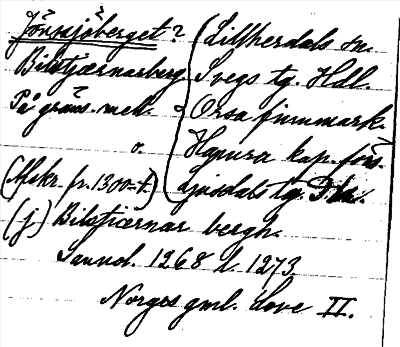 Jönssjöberget? (Lillherdals sn.
Bilstjærnarberg Svegs tg. Hdl.
På gräns. mel. Orsa finnmark.
o. Hamra kap. förs.
(Afskr. fr. 1300-t.) Ljusdals tg.
(j) Bilstiærnar bergh.
Sannol. 1268 l. 1273
Norges gml. Love II.